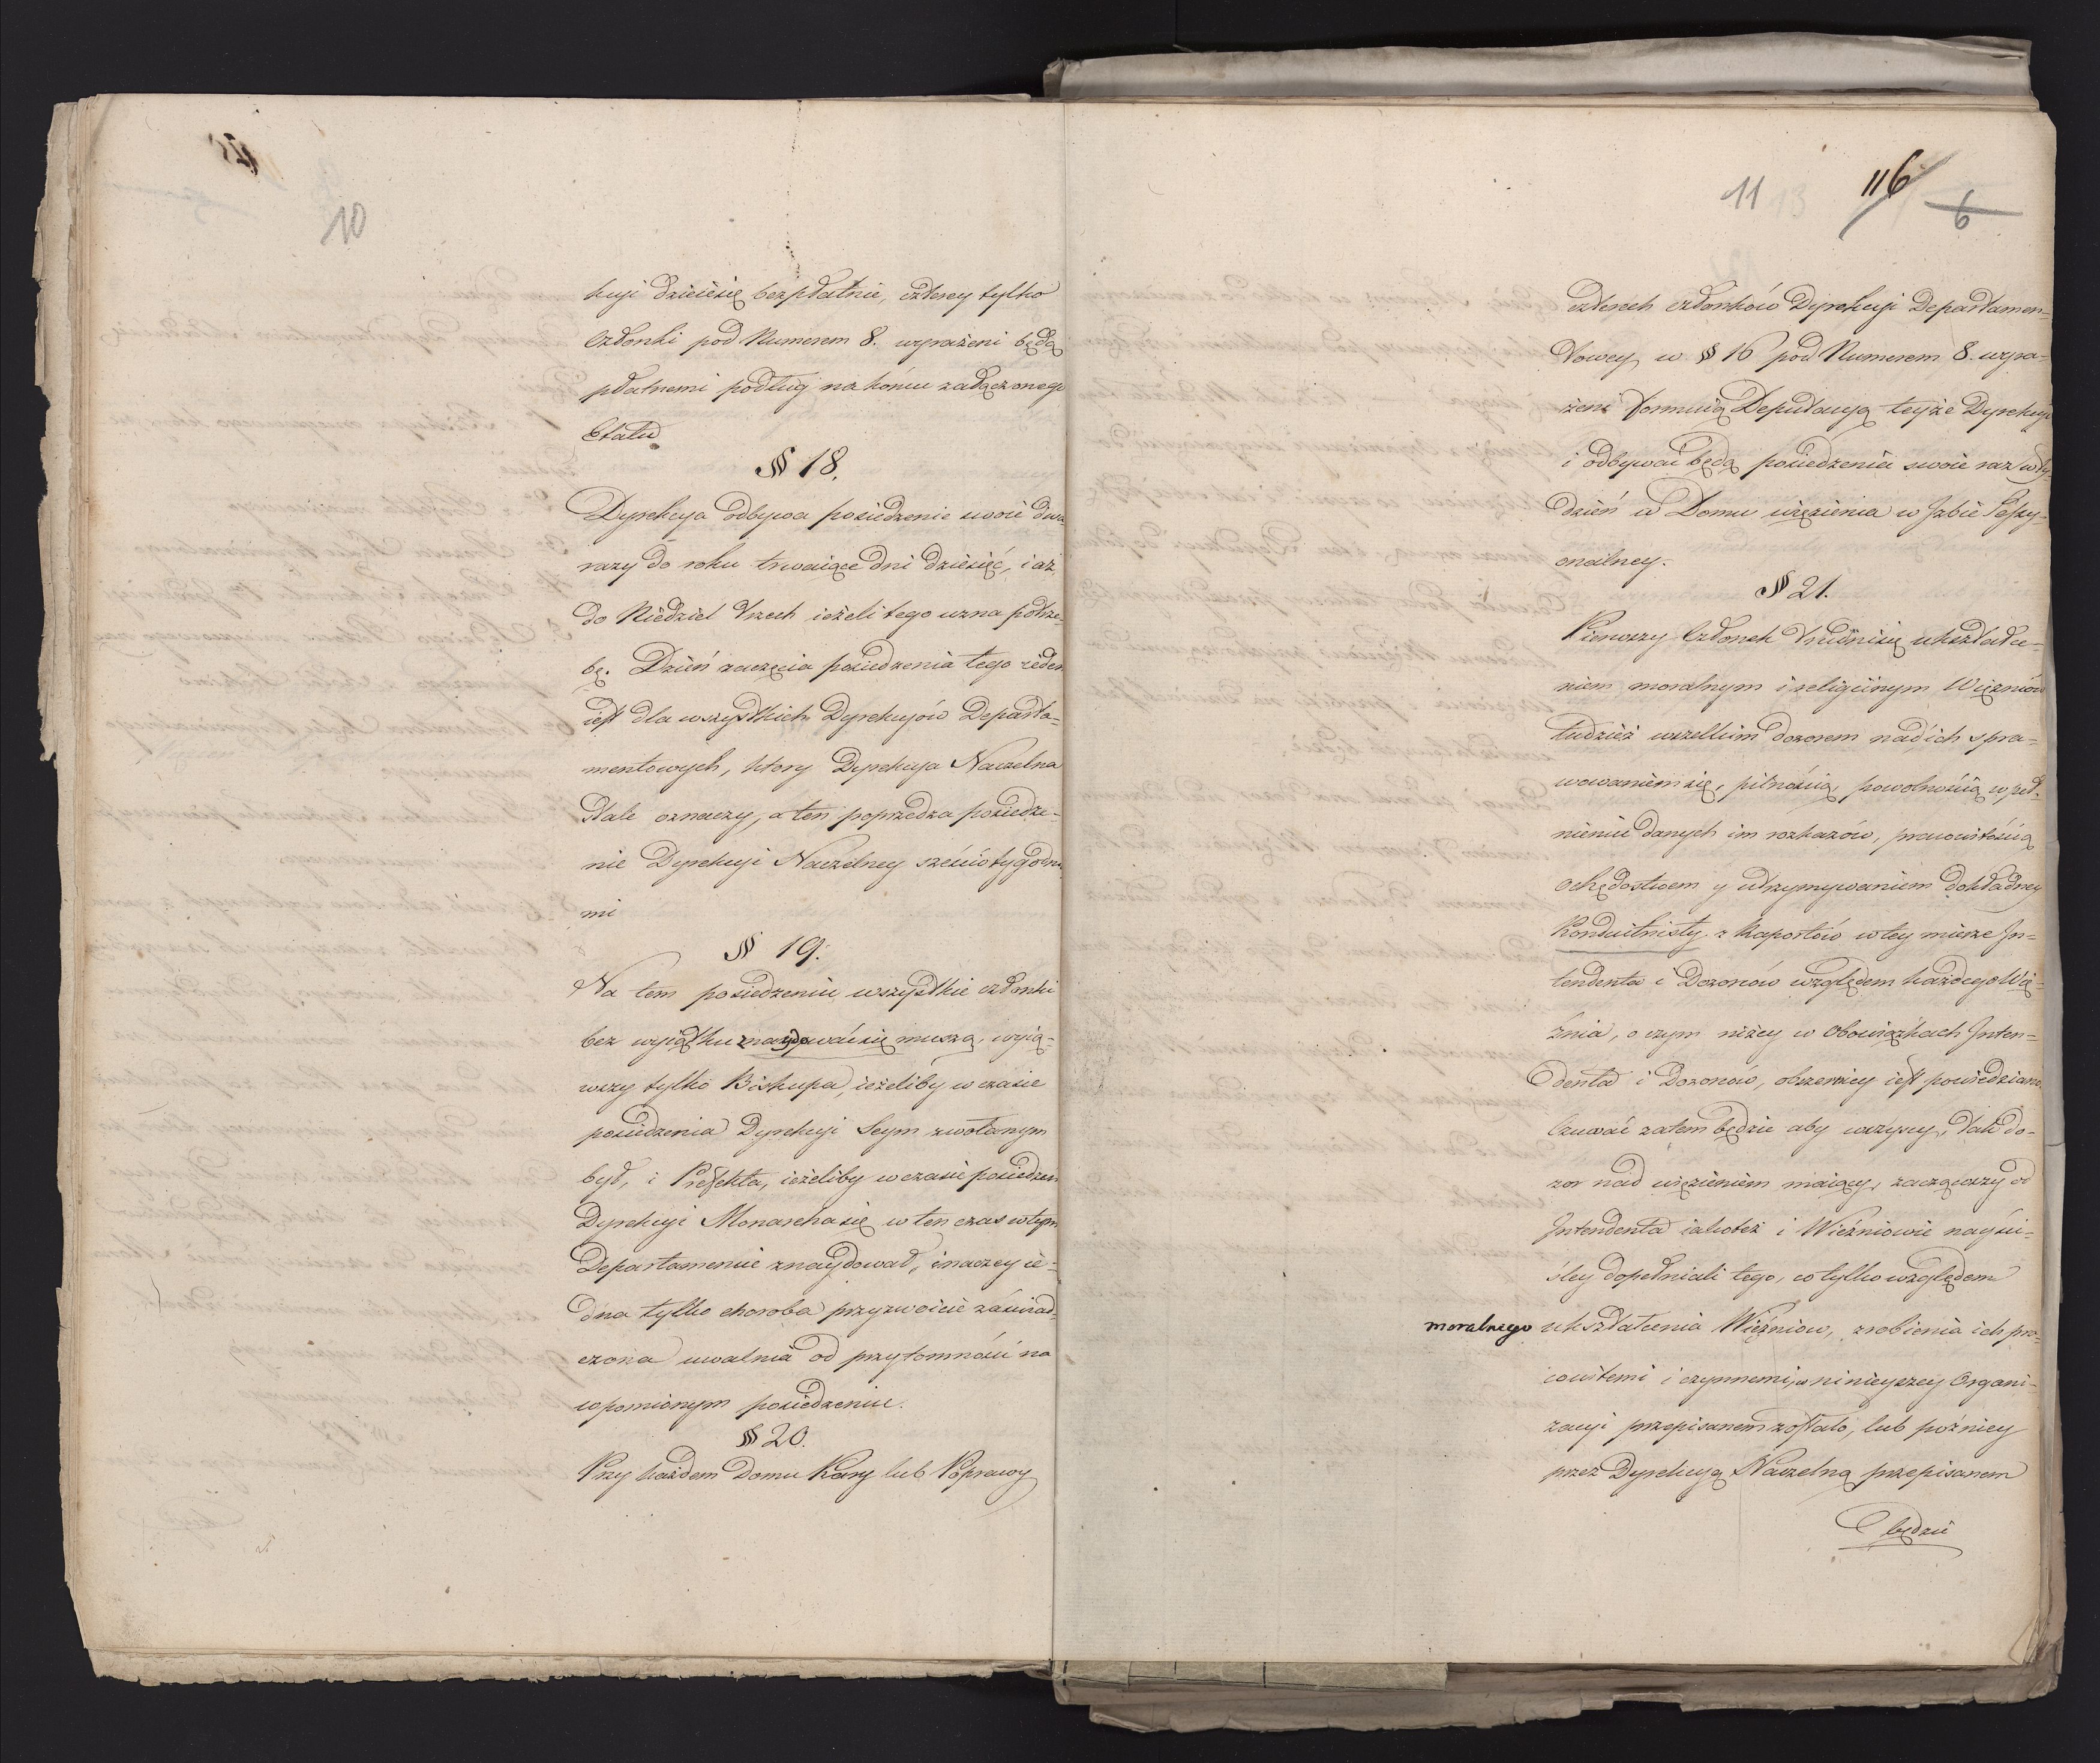 10
kuji dziesięę bezpłatnie, czterey tylko
Członki pod Numerem 8. wyrażeni będą
płatnemi podług na końcu załączonego
Etatu
§ 18.
Dyrekcya odbywa posiedzenie swoie dwa
razy do roku trwaiące dni dziesięć, i aż
do Niedziel trzech ieżeli tego uzna potrze-
bę. Dzień zaczęcia posiedzenia tego ieden
iest dla wszystkich Dyrekcyów Departa-
mentowych, ktory Dyrekcya Naczelna
stale oznaczy, a ten poprzedza posiedze-
nie Dyrekcyi Naczelney sześcio tygodnia
mi
§ 19.
Na tem posiedzeniu wszystkie członki
bez wyiątku znaydować się muszą, wyią-
wszy tylko Biskupa, ieżeliby w czasie
posiedzenia Dyrekcyi Seym zwołanym
był, i Prefekta, ieżeliby w czasie posiedzen
Dyrekcyi Monarcha się w ten czas w tym
Departamencie znaydował, inaczey ie-
dna tylko choroba przyzwoicie zaświad-
czona uwalnia od przytomności na
wpomionym posiedzeniu.
§ 20.
Przy każdem Domu Kary lub Poprawy
11 13 116 6
czterech członków Dyrekcyi Departamen-
towey w § 16 pod Numerem 8. wyra-
żeni formuią Deputacyą teyże Dyrekcyi
i odbywać będą posiedzenia swoie raz w ty-
dzień w Domu więzienia w Izbie Sessy-
onalney.
§ 21.
Pierwszy Członek trudni się ukształce-
niem moralnym i religiinym Więzniów
tudzież wszelkim dozorem nad ich spra-
wowaniem się, pilnością, powolnością w peł-
nieniu danych im rozkazów, pracowitością
ochędostwem y utrzymywaniem dokładney
Konduitlisty z Raportów w tey mierze In-
tendenta i Dozorców względem każdego Wię-
źnia, o czym niżey w Obowiązkach Inten-
denta i Dozorców, obszerniey iest powiedziano.
Czuwać zatem będzie aby wszyscy, tak do-
zor nad więzieniem maiący, zacząwszy od
Intendenta iakoteż i Więźniowie nayści-
śley dopełniali tego, co tylko względem
moralnego ukształcenia Więźniow, zrobienia ich pra-
cowitemi i czynnemi, w ninieyszey Organi-
zacyi przepisanem zostało, lub poźniey
przez Dyrekcyą Naczelną przepisanem
będzie